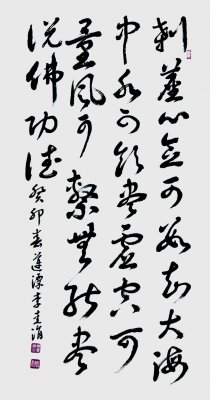 刹塵心念可數知大海
中水可飲盡虛空可
量風可繫無能盡
說佛功德
癸卯春